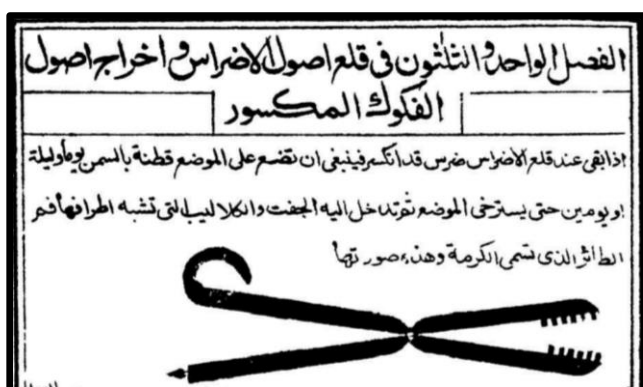 الفصل الواحد والثلثون فى قلع اصول الاضراس واخراج اصول
الفكوك المكسور
اذا بقى عند قلع الاضراس ضرس قد انكسر فينبغى ان تضع على الموضع قطنة بالسمن يوما وليلة
او يومين حتى يسترخى الموضع ثم تدخل اليه الجفت والكلاليب التى تشبه اطرافها فم
الطائر الذى تسمى الكرمة وهذه صورتها